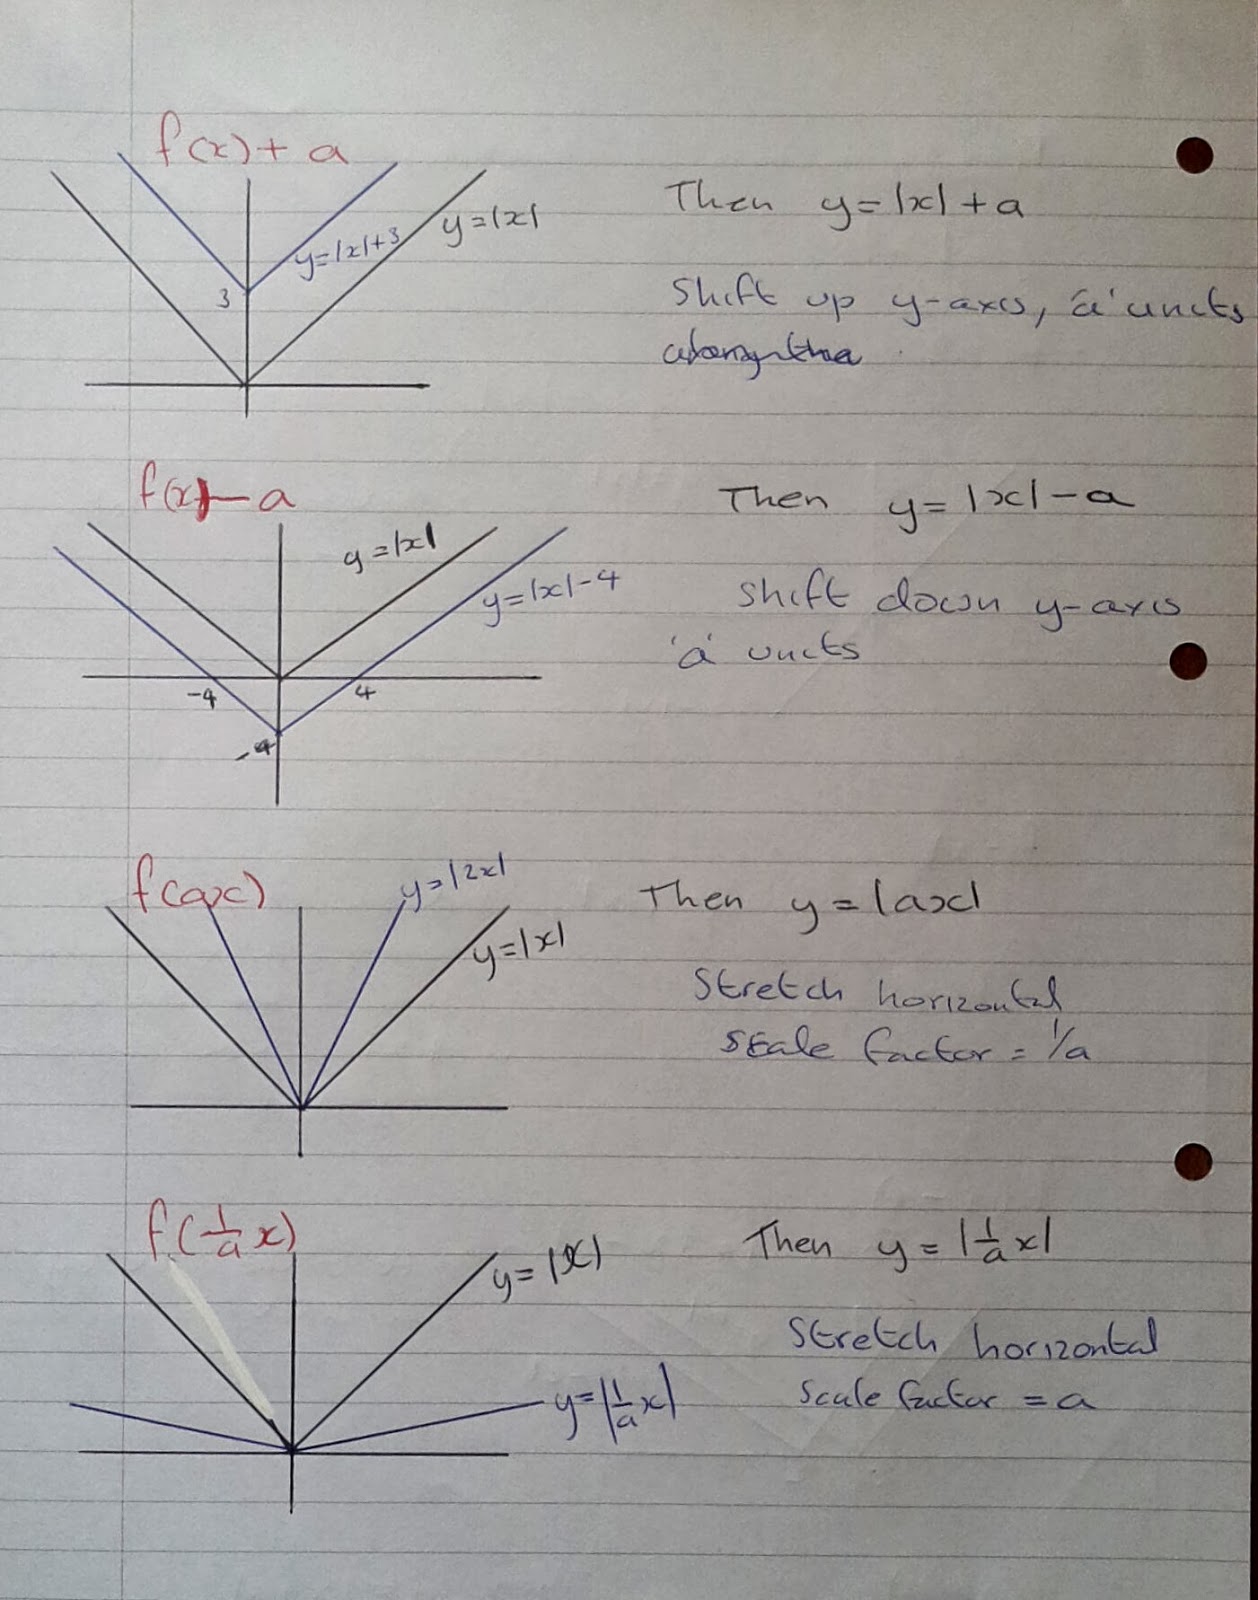 f(x) + a
y=|x|+3
y=|x|
3
Then y=|x|+a
Shift up y-axis, 'a' units
along the
f(x) - a
y=|x|
y=|x|-4
-4
4
-4
Then y=|x|-a
Shift down y-axis
'a' units
f(ax)
y=|2x|
y=|x|
Then y=|ax|
Stretch horizontal
scale factor = 1/a
f(1/a x)
y=|x|
y=|1/a x|
Then y=|1/a x|
Stretch horizontal
scale factor = a